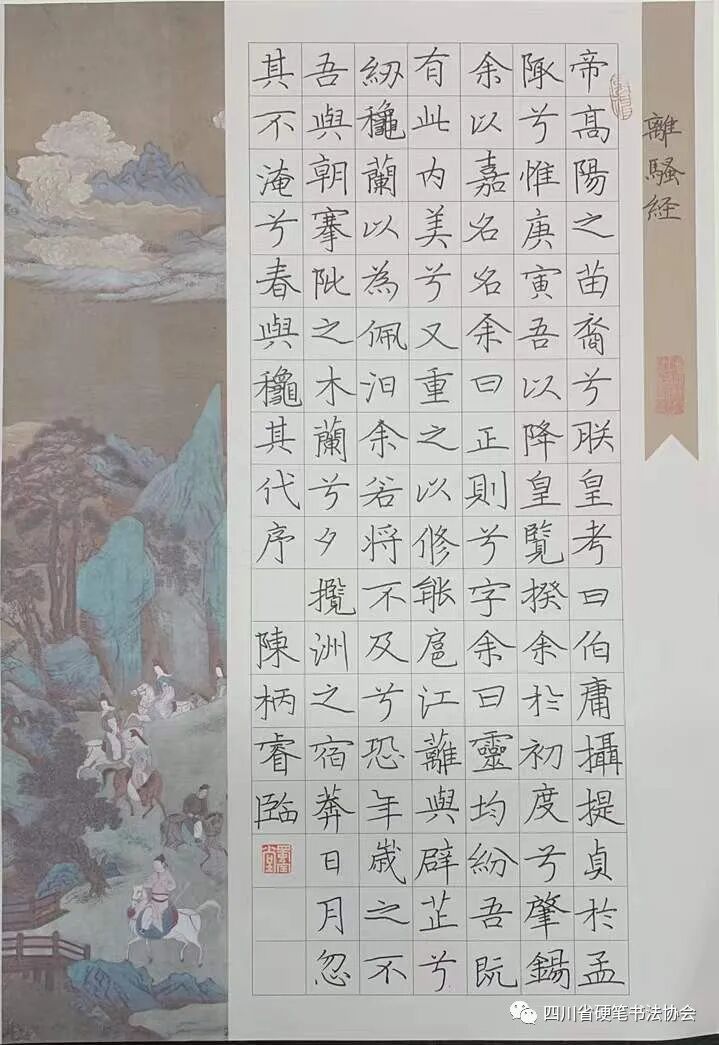 離騷経
帝髙陽之苗裔兮朕皇考曰伯庸攝提貞於孟
陬兮惟庚寅吾以降皇覽揆余於初度兮肇錫
余以嘉名名余曰正則兮字余曰靈均紛吾既
有此内美兮又重之以修能扈江蘺與辟芷兮
紉龝蘭以為佩汨余若将不及兮恐年歲之不
吾與朝搴阰之木蘭兮夕攬洲之宿莽日月忽
其不淹兮春與龝其代序 陳柄睿臨
四川省硬笔书法协会